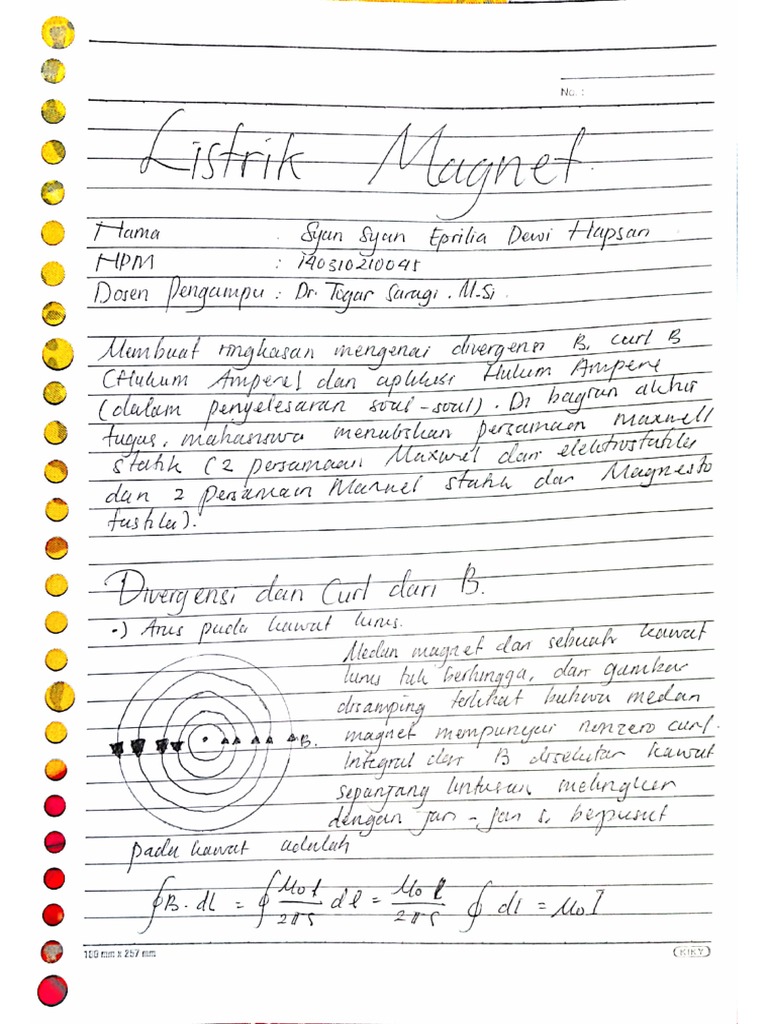 No. :
Listrik Magnet.
Nama : Syan Syan Eprilia Dewi Hapsari
NPM : 140310210045
Dosen Pengampu : Dr. Togar Saragi. M.Si.
Membuat ringkasan mengenai divergensi B, curl B
(Hukum Ampere) dan aplikasi Hukum Ampere
(dalam penyelesaian soal-soal). Di bagian akhir
tugas, mahasiswa menuliskan persamaan Maxwell
statik (2 persamaan Maxwel dari elektrostatika
dan 2 persamaan Maxwel statik dar Magnesto
tastika).
Divergensi dan Curl dari B.
•) Arus pada kawat lurus.
Medan magnet dari sebuah kawat
lurus tak berhingga, dari gambar
disamping terlihat bahwa medan
B. magnet mempunyai nonzero curl.
Integral dari B disekitar kawat
sepanjang lintasan melingkar
dengan jari-jari s, berpusat
pada kawat adalah
∮B. dl = ∮ μ₀I/2πs dl = μ₀I/2πs ∮ dl = μ₀I
180 mm x 257 mm KIKY